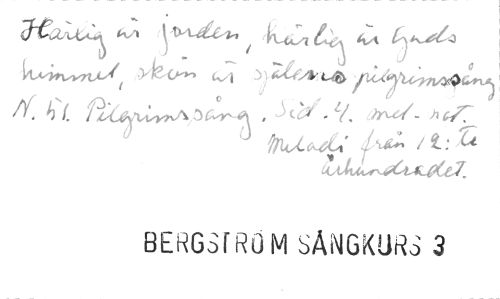 Härlig är jorden, härlig är Guds
himmel, skön är själens pilgrimssång
N. 51. Pilgrimssång. Sid. 4. mel-not.
Melodi från 12:te
århundradet.
BERGSTRÖM SÅNGKURS 3